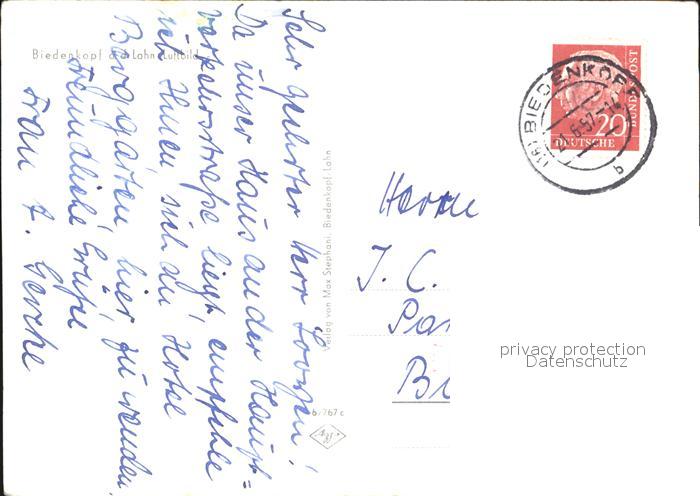 Biedenkopf a d Lahn Luftbild
Sehr geehrter Herr Loosen!
Da unser Haus an der Haupt=
verkehrsstraße liegt, empfehle
ich Ihnen sich an Hotel
Berggarten hier zu wenden.
Freundliche Grüße
Frau A.
Verlag von Max Stephani, Biedenkopf/Lahn
6/767c
Herrn
J. C.
Par
Br
(16) BIEDENKOPF
6.57.-14
b
20
DEUTSCHE
BUNDESPOST
privacy protection
Datenschutz